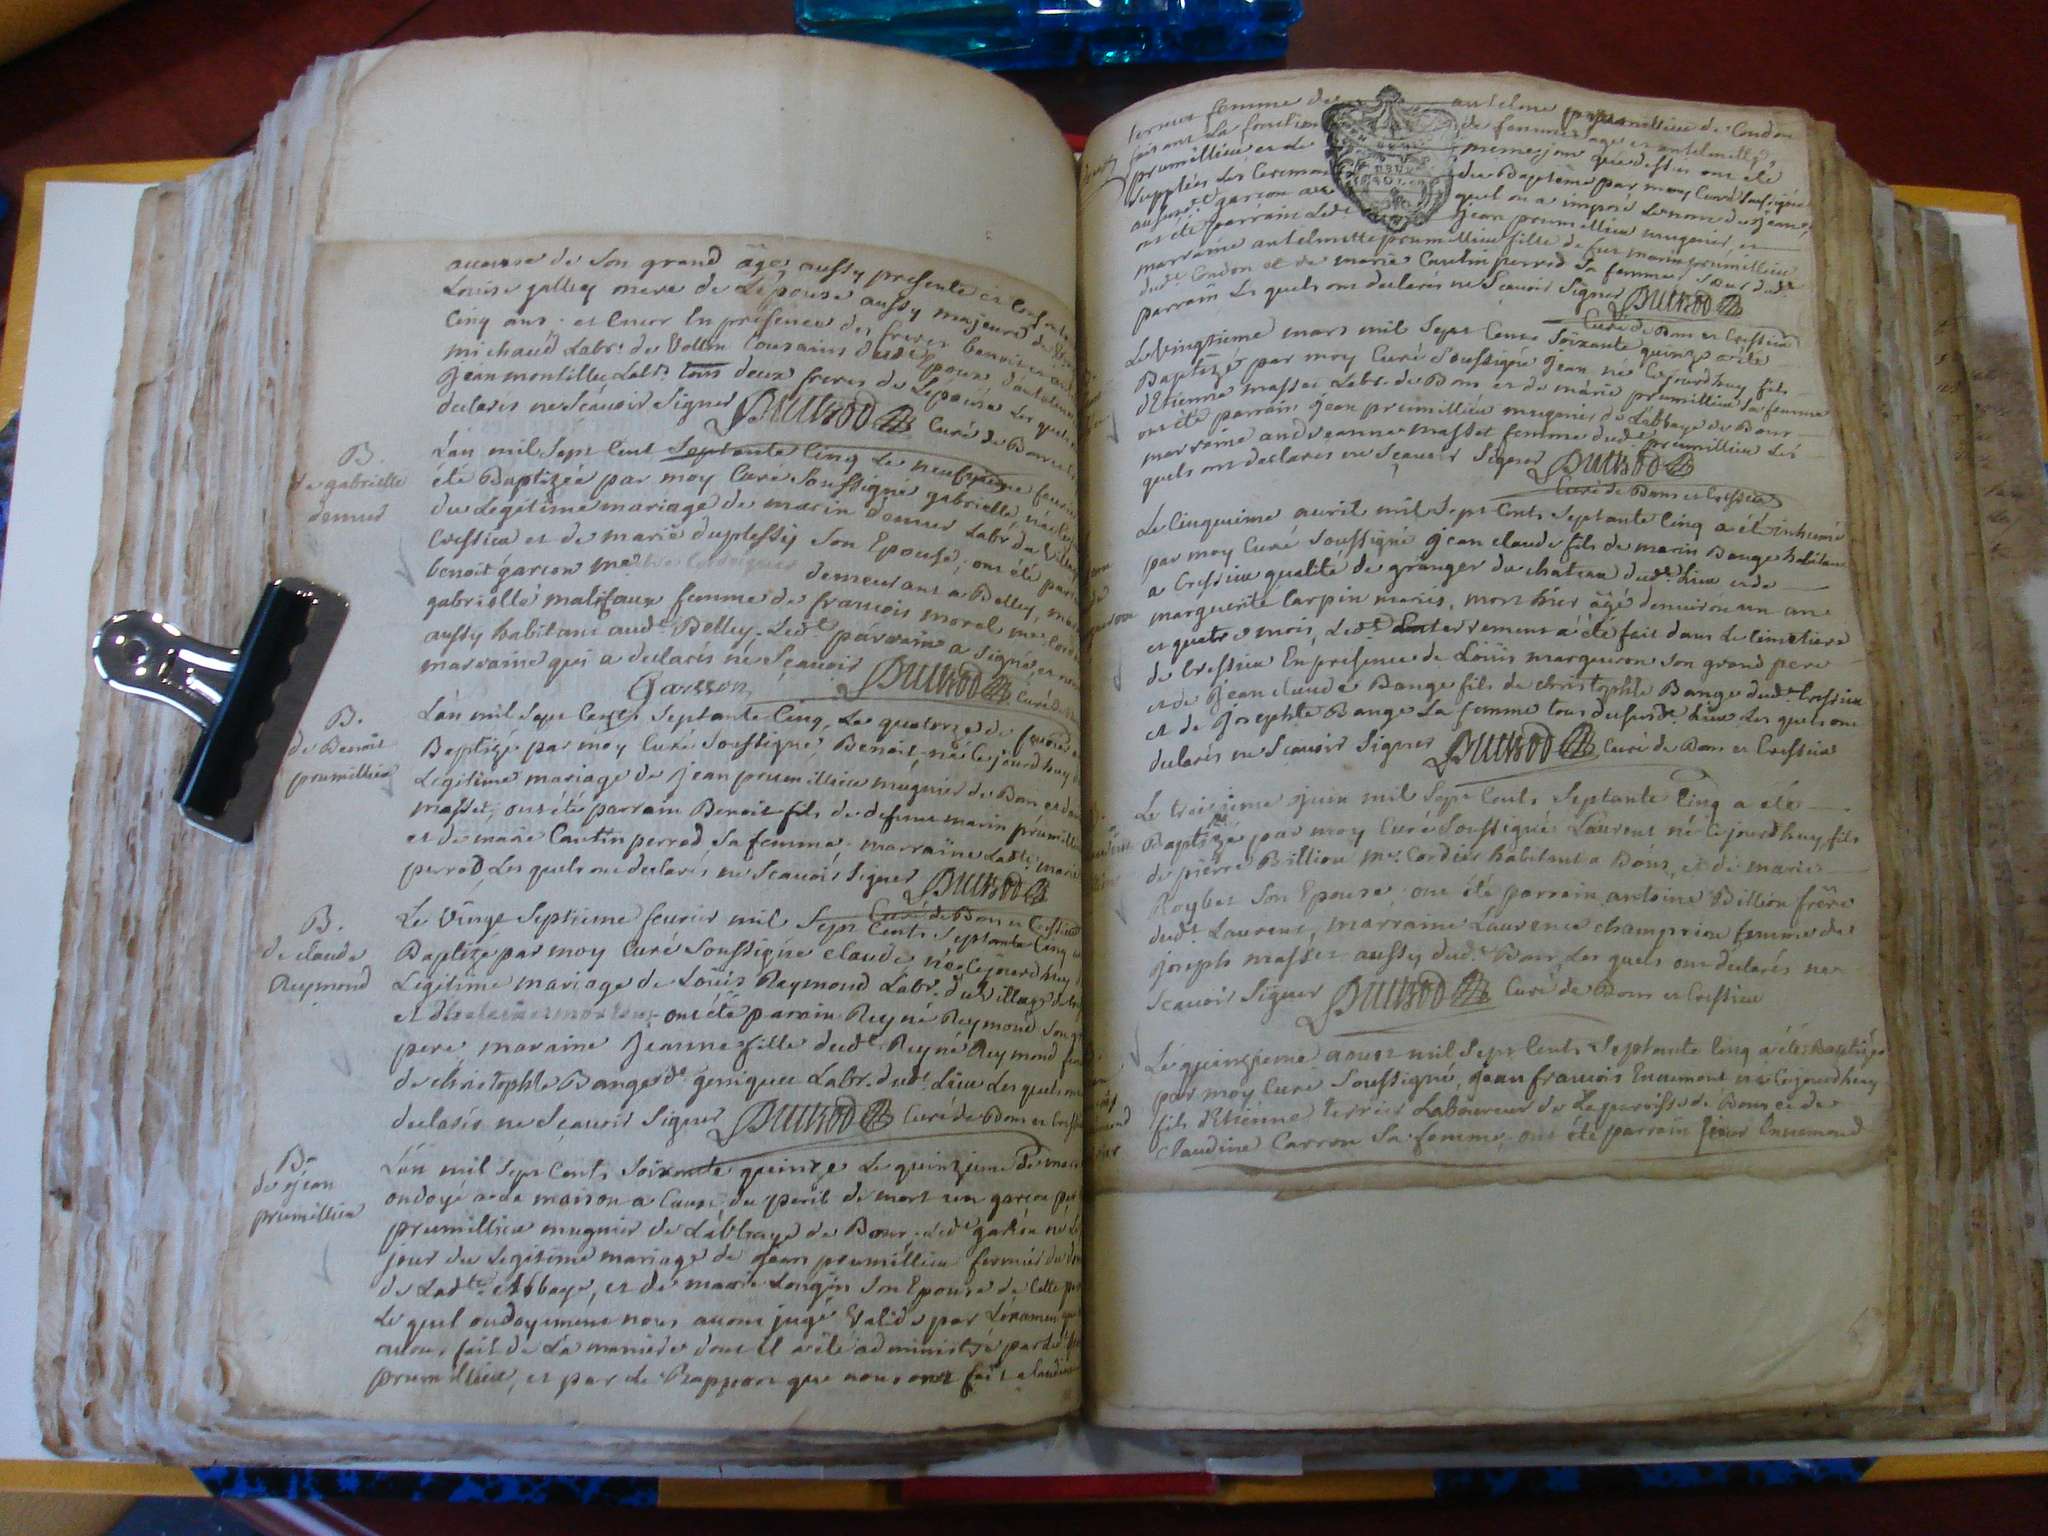 aucause de son grand âge, aussy presente et
Louise jallley mere de L'Epouse aussy majeure de
Cinq ans. et encor En présence des freres benoit et
michaud Labr. de Vollin Cousains dud Epoux d'antoine
Jean montillet Labr. tous deux freres de L'épouse Les quels
declarés ne Scauoir Signer Dutisod Curé de Bons
B.
de gabrielle
demur
L'an mil Sept Cent Septante Cinq Le neufvieme feurier
été Baptizée par moy Curé Soussigné gabrielle, née
du Legitime mariage de marin demur Labr du Village
Cressieu et de marie duplessy son Epouse, ont été
benoit garson me demeurant a Belley,
gabrielle malifaux femme de francois morel me
aussy habitant aud. Belley. Led.t parrain a signé, et non
marraine qui a declarés ne Sçauoir Dutisod Curé
Garsson
B.
de Benoit
prumillieu
L'an mil Sept Cents Septante Cinq, Le quatorze de feurier
Baptizé par moy Curé Soussigné, Benoit né ce jourd'huy
Legitime mariage de Jean prumillieu mugnier de Bons et
masset; ont été parrain Benoit fils de defunt marin prumillieu
et de marie Cantin perrod Sa femme. marraine Ladte marie
perrod Les quels ont declarés ne Scauoir Signer Dutisod
Curé de Bons et Cressieu
B.
de claude
Reymond
Le Vingt Septieme feurier mil Sept Cents Septante Cinq
Baptizé par moy Curé Soussigné claude né ce jourd'huy
Legitime mariage de Loüis Reymond Labr. du Village de
et ont été parrain Reyné Reymond Son
pere, maraine Jeanne fille dud.t Reyné Reymond
de christophle Bange geniquet Labr. dud.t Lieu Les quels ont
declarés ne Sçauoir Signer Dutisod Curé de Bons et
B.
de Jean
prumillieu
L'an mil Sept Cents Soixante quinze Le quinzieme de mars
ondoyé a la maison a Cause du peril de mort un garcon
prumillieu mugnier de L'abbaye de Bons, Led.t garcon né
jour du Legitime mariage de Jean prumillieu fermier du
de Ladte Abbaye, et de marie Longin Son Epouse de Cette
Le quel ondoyement nous auons jugé Valide par L'examen que
auons fait de La maniere dont il a été administré par
prumillieu, et par de Rapport que nous ont fait claudine
femme de antelme prumillieu de Condon
faisant La fonction de femme sage et antelmette
prumillieu, et Le meme jour que dessus ont été
supplées Les Ceremonies du Baptême par moy Curé Soussigné
aususd.t garcon au quel on a imposé Le nom de Jean,
ont été parrain Led.t Jean prumillieu mugnier, et
marraine antelmette prumillieu fille de feu marin prumillieu
dud.t Condon et de marie Cantin perrod Sa femme Sœur dud.t
parrain Les quels ont declarés ne Scauoir Signer Dutisod
Curé de Bons et Cressieu
Le vingtieme mars mil Sept Cents Soixante quinze a été
Baptizé par moy Curé Soussigné Jean né ce jourd'huy fils
d'Etienne masset Labr. de Bons et de marie prumillieu Sa femme
ont été parrain Jean prumillieu mugnier de L'abbaye de Bons
marraine andreanne masset femme dud.t prumillieu Les
quels ont declarés ne Sçauoir Signer Dutisod
Curé de Bons et Cressieu
Le Cinquieme auril mil Sept Cents Septante Cinq a été inhumé
par moy Curé Soussigné Jean claude fils de marin Bange habitant
a Cressieu qualité de granger du chateau dud.t Lieu et de
marguerite Carpin mariés, mort hier âgé d'enuiron un an
et quatre mois, Led.t Enterrement a été fait dans Le Cimetiere
de Cressieu En presence de Loüis marqueron Son grand pere
et de Jean claude Bange fils de christophle Bange dud.t Cressieu
et de Josephte Bange La femme tous dususd.t Lieu Les quels ont
declarés ne Scauoir Signer Dutisod Curé de Bons et Cressieu
Le troisieme Juin mil Sept Cents Septante Cinq a été
Baptizé par moy Curé Soussigné Laurent né ce jourd'huy, fils
de pierre Billion me Cordier habitant a Bons, et de marie
Roybet Son Epouse, ont été parrain antoine Billion frère
dud.t Laurent, marraine Laurence champrion femme de
joseph masset aussy dud.t Bons, Les quels ont declarés ne
Scauoir Signer Dutisod Curé de Bons et Cressieu
Le quinzieme aoust mil Sept Cents Septante Cinq a été Baptizé
par moy Curé Soussigné, Jean francois Ennemond né ce jourd'huy
fils d'Etienne terrier Laboureur de La paroisse de Bons et de
claudine Carron Sa femme, ont été parrain Ennemond